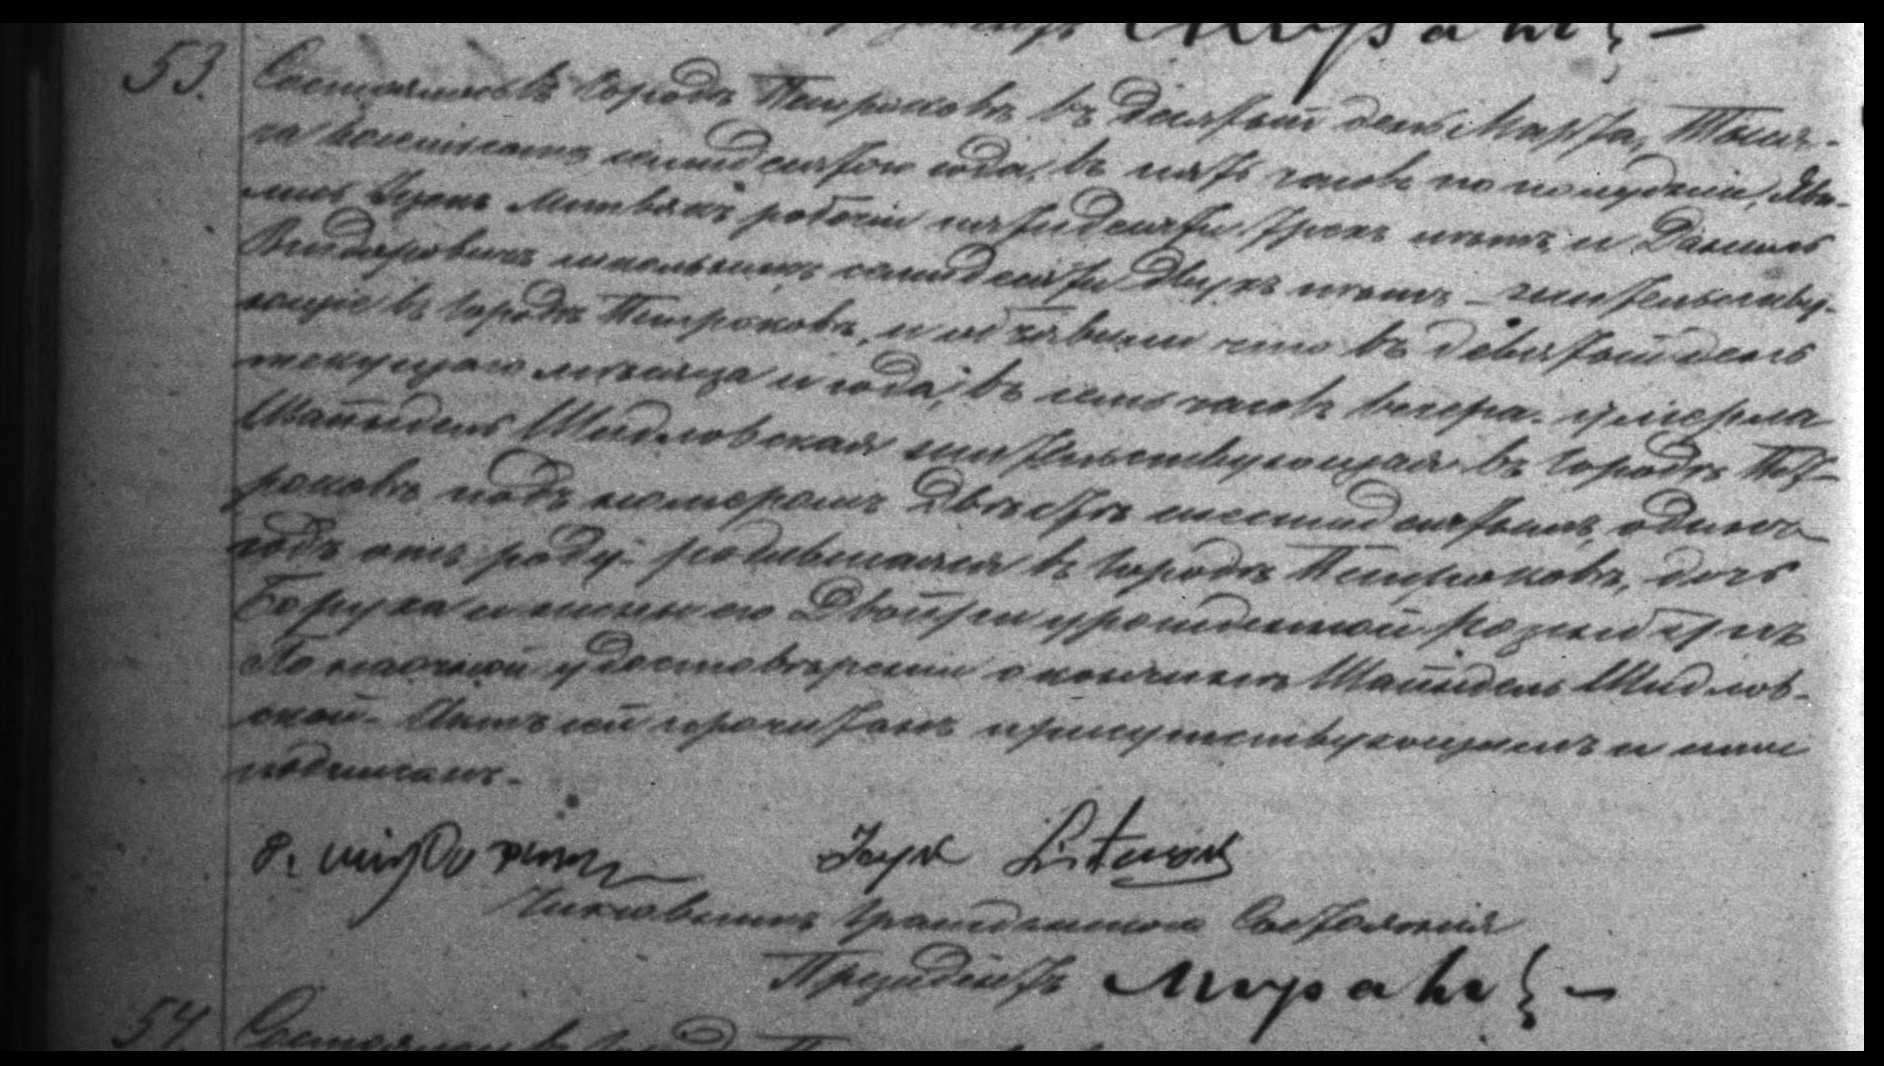 53.
Состоялось въ Городѣ Петроковѣ въ Десятый день Марта, Тыся-
ча восемьсотъ семидесятого года, въ пять часовъ по полудни, Яви-
лись Литвакъ рабочій пятидесяти трехъ лѣтъ, и Даніель
школьникъ семидесяти двухъ лѣтъ – жительству-
ющіе въ Городѣ Петроковѣ, и объявили что въ девятый день
текущаго мѣсяца и года, въ семь часовъ вечера. умерла
Шайндель Шидловская жительствующая въ Городѣ Пет-
роковѣ подъ номеромъ Двѣстѣ шестидесятымъ, одинъ
годъ отъ роду; родившаяся въ Городѣ Петроковѣ, дочь
Боруха и жены его Двойры урожденной
По наочной удостовѣреніи о кончинѣ Шайндель Шидлов-
ской. Актъ сей прочитанъ присутствующимъ и ими
подписанъ.
Чиновникъ Гражданскаго Состоянія
Президентъ
54.
Состоялось въ Городѣ